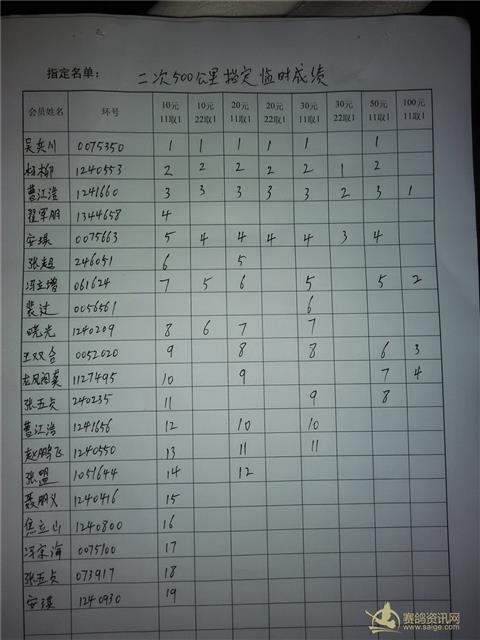 指定名单: 二次500公里指定临时成绩
会员姓名 环号 10元 11取1 10元 22取1 20元 11取1 20元 22取1 30元 11取1 30元 22取1 50元 11取1 100元 11取1
吴奕川 0075350 1 1 1 1 1 1
杨柳 1240553 2 2 2 2 2 1 2
曹江浩 1241660 3 3 3 3 3 2 3 1
翟军朋 1344658 4
安瑛 0075663 5 4 4 4 4 3 4
张超 246051 6 5
冯立增 061624 7 5 6 5 5 2
裴过 0056561 6
晓光 1240209 8 6 7 7
王双合 0052020 9 8 8 6 3
龙凤阁英 1127495 10 9 7 4
张五贞 240235 11 9 8
曹江浩 1241656 12 10 10
赵鹏飞 1240550 13 11 11
张盟 1051644 14 12
聂朋义 1240416 15
焦立山 1240800 16
冯宗海 0075100 17
张五贞 073917 18
安瑛 1240930 19
赛鸽资讯网
www.saige.com